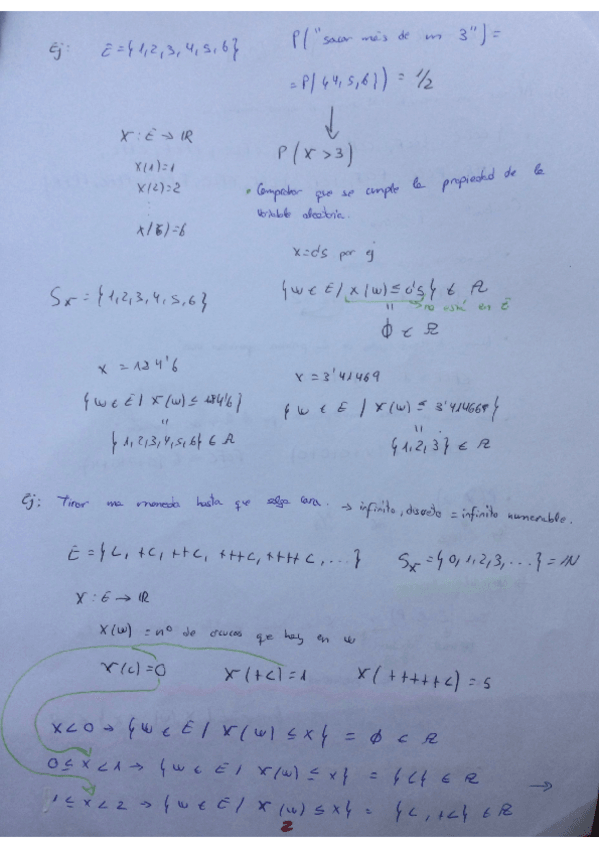 Ej: E={1,2,3,4,5,6}
P("sacar más de un 3")=
=P({4,5,6}) = 1/2
X: E → ℝ
X(1)=1
X(2)=2
⋮
X(6)=6
P(X>3)
• Comprobar que se cumple la propiedad de la
variable aleatoria.
x=0'5 por ej
Sx={1,2,3,4,5,6}
{w ∈ E / X(w) ≤ 0'5} ∈ A
→ no está en E
=
∅ ∈ A
x = 184'6
{w ∈ E / X(w) ≤ 184'6}
=
{1,2,3,4,5,6} ∈ A
x = 3'41469
{w ∈ E / X(w) ≤ 3'414669}
=
{1,2,3} ∈ A
Ej: Tirar una moneda hasta que salga cara. → infinito, discreto = infinito numerable.
E={C, +C, ++C, +++C, ++++C, ...}
Sx={0,1,2,3,...}=ℕ
X: E → ℝ
X(w) = nº de cruces que hay en w
X(C)=0
X(+C)=1
X(+++++C)=5
x<0 → {w ∈ E / X(w) ≤ x} = ∅ ∈ A
0≤x<1 → {w ∈ E / X(w) ≤ x} = {C} ∈ A
1≤x<2 → {w ∈ E / X(w) ≤ x} = {C, +C} ∈ A →
2